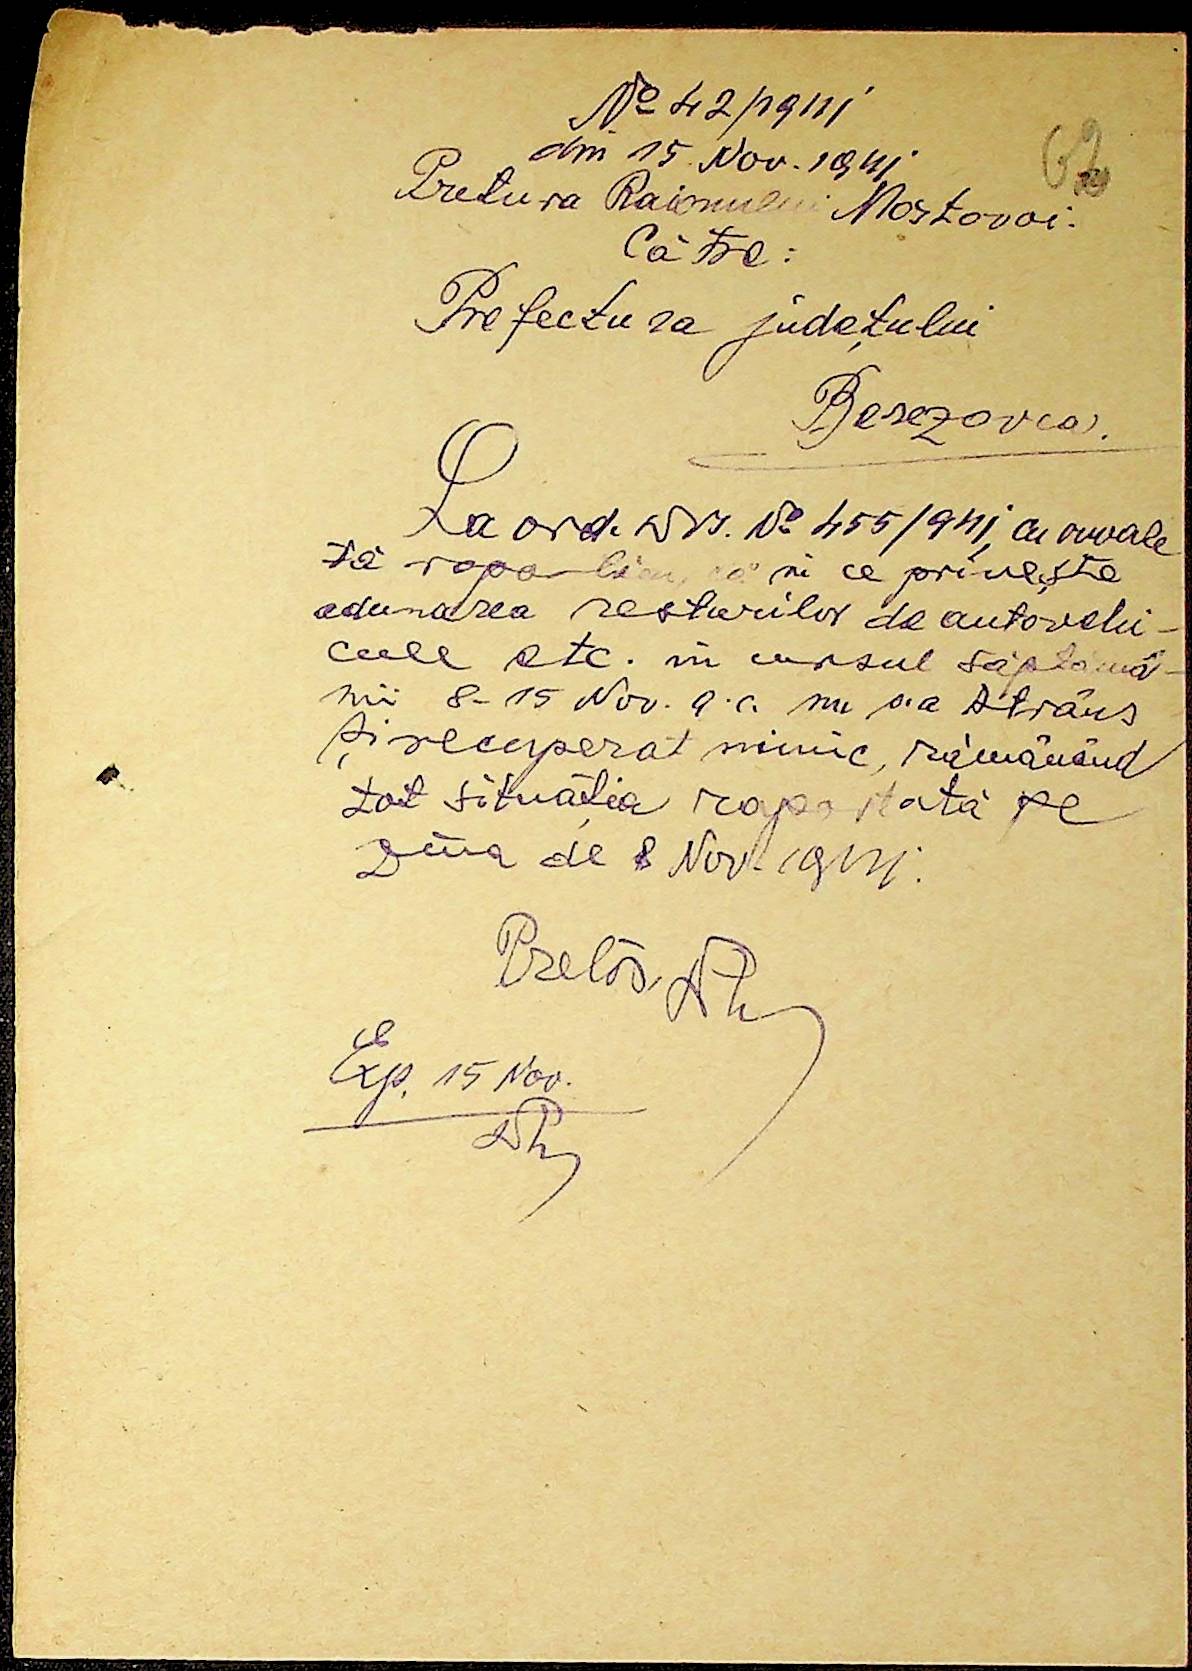 Nº 42/1941
din 15 Nov. 1941
62
Pretura Raionului Mostovoi.
Către:
Prefectura județului
Berezovca.
La ord. Dvs. Nº 455/941, cu onoare
vă raportăm, că în ce privește
adunarea resturilor de autovehi-
cule etc. în cursul săptămâ-
nii 8-15 Nov. a.c. nu s-a strâns
și recuperat nimic, rămânând
tot situația raportată pe
ziua de 8 Nov. 1941.
Pretor,
Exp. 15 Nov.